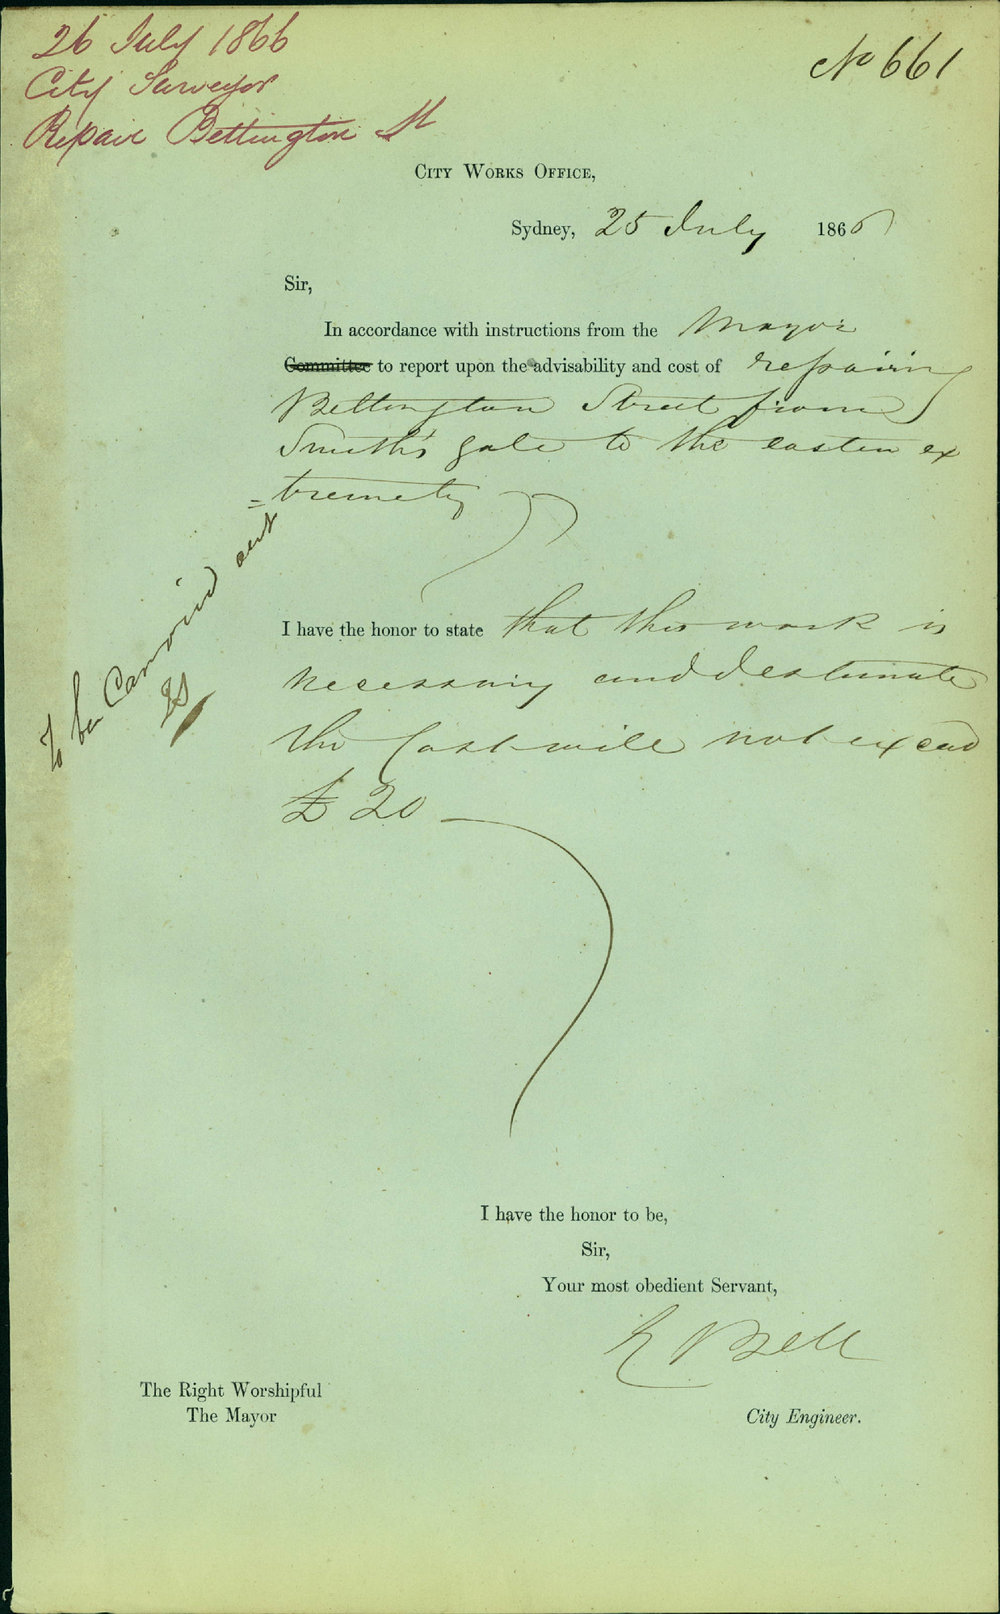 26 July 1866
City Surveyor
Repair Bettington St
No 661
City Works Office,
Sydney, 25 July 1866
Sir,
In accordance with instructions from the Mayor
Committee to report upon the advisability and cost of repairing
Bettington Street from
Smith's gate to the eastern ex
=tremety
To be Carried out
I have the honor to state that this work is
necessary and I estimate
the Cost will not exceed
£20
I have the honor to be,
Sir,
Your most obedient Servant,
E Bell
The Right Worshipful
The Mayor
City Engineer.